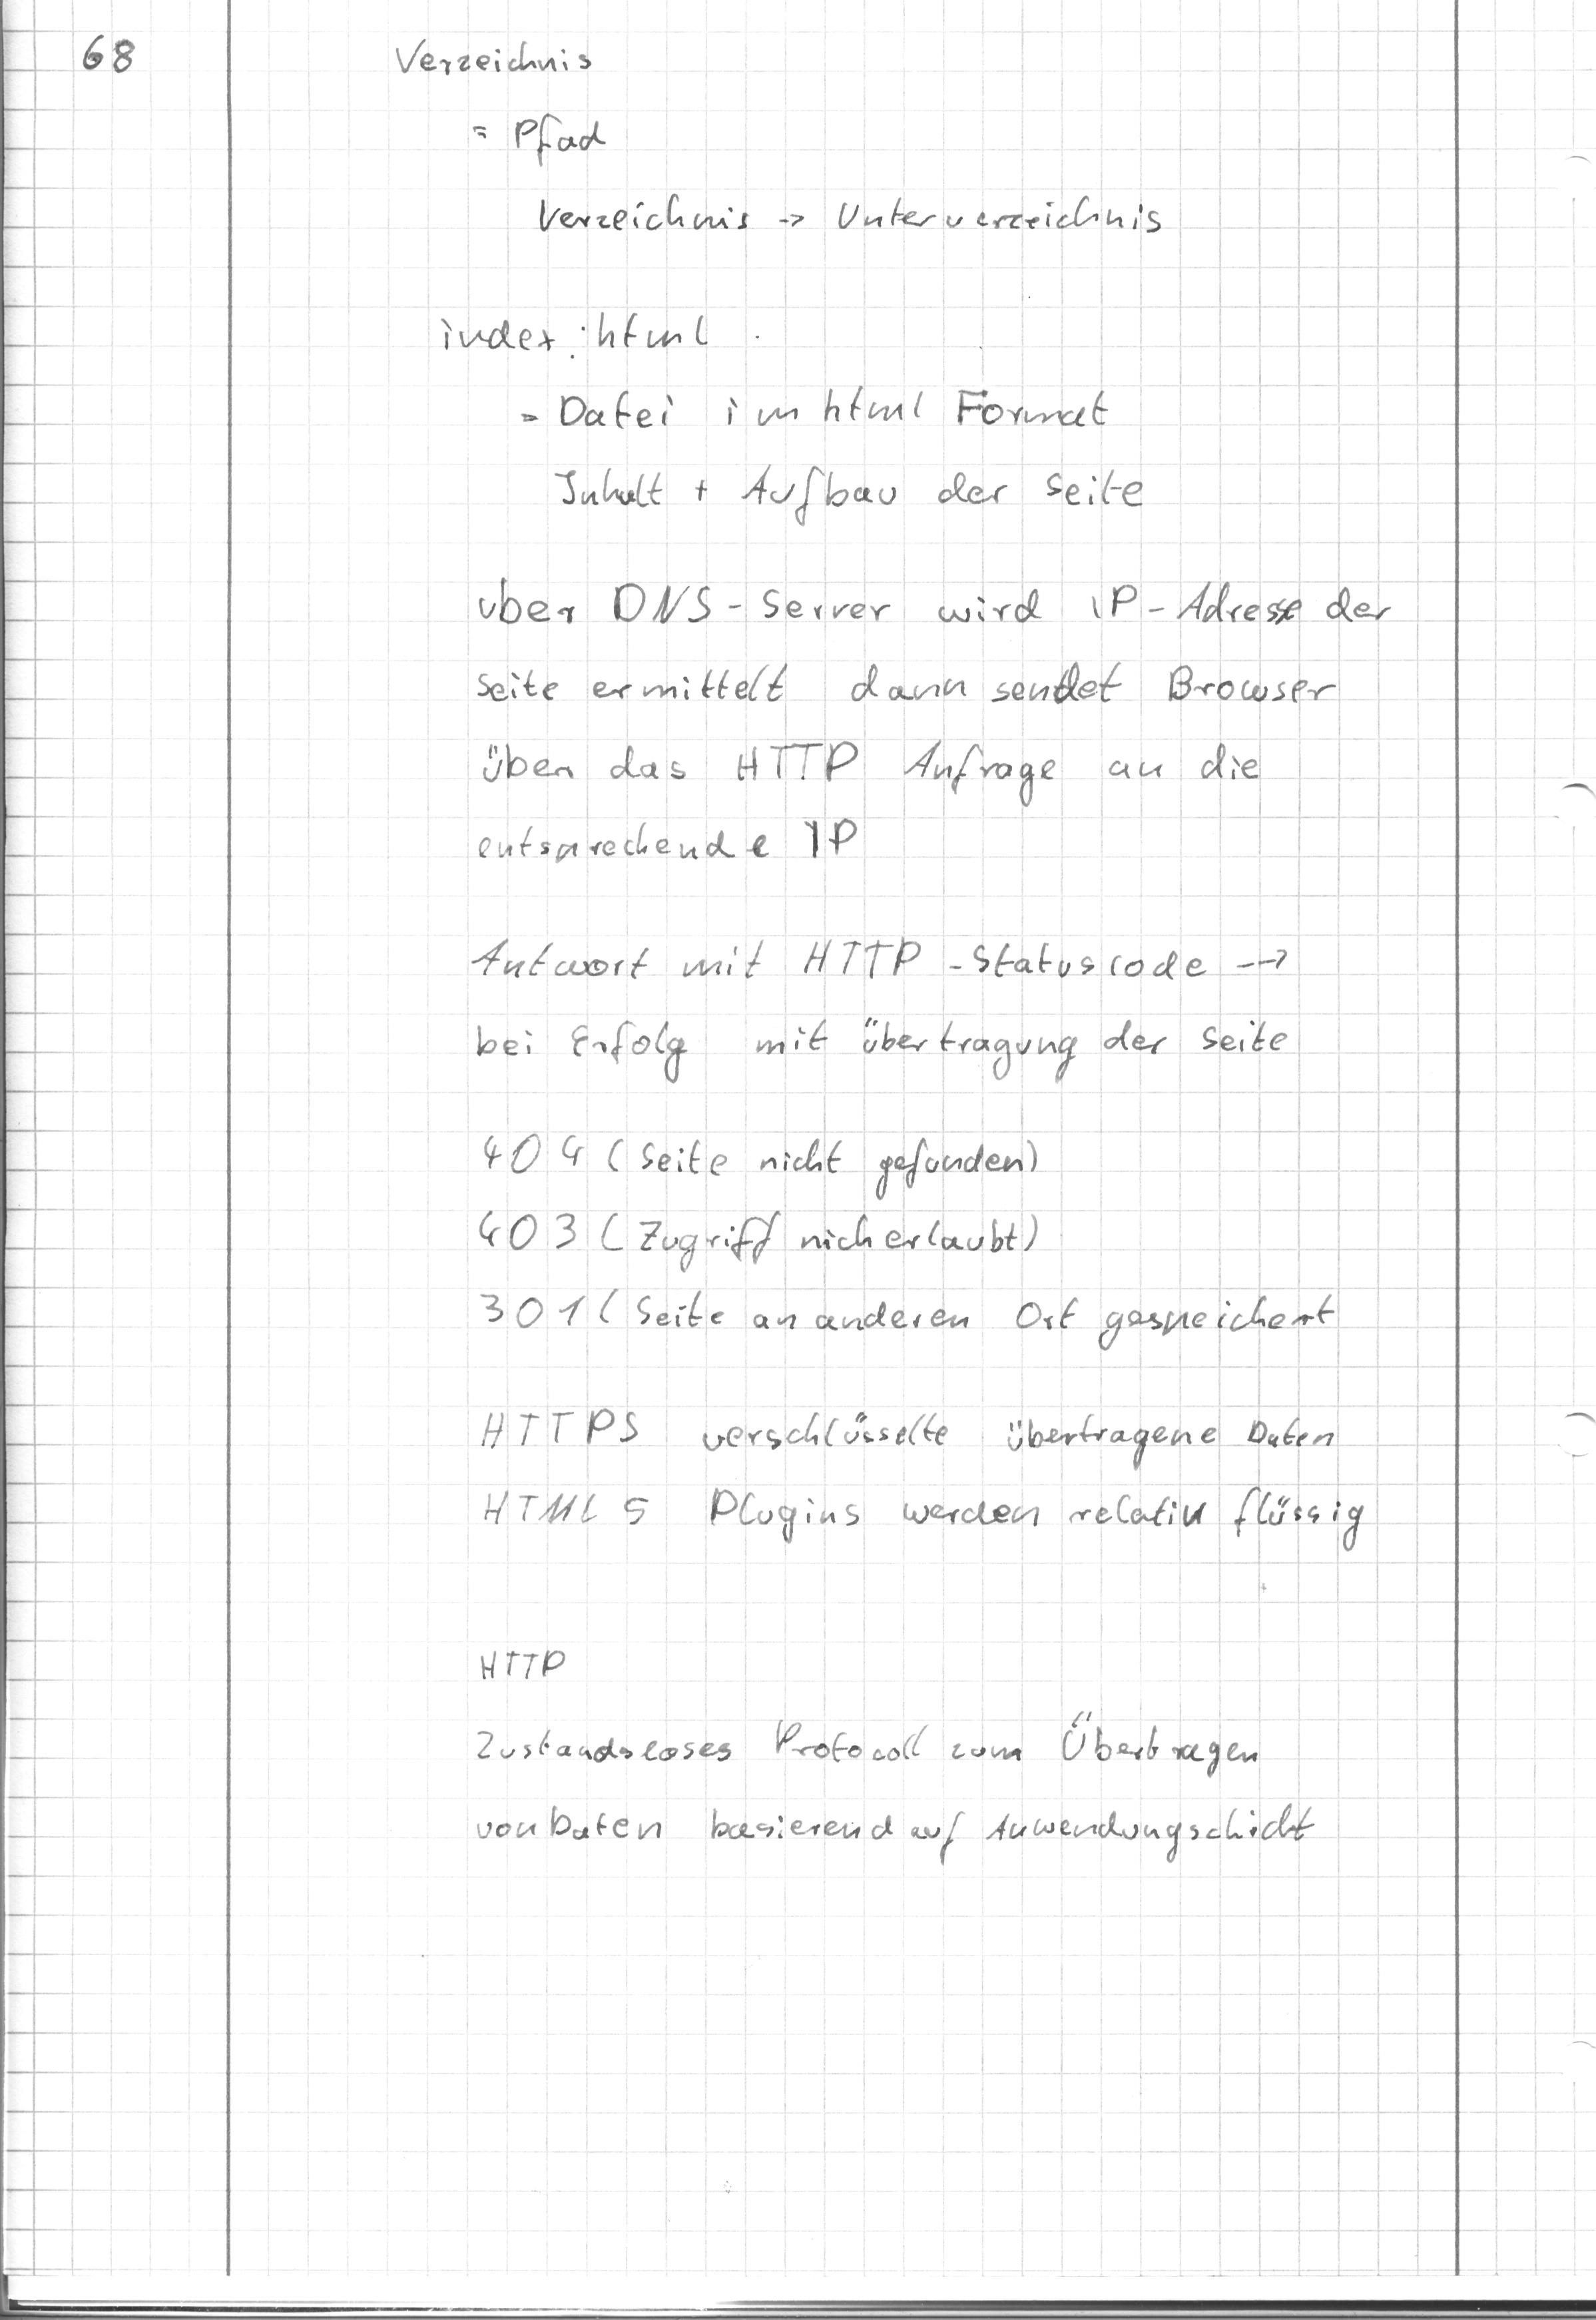 68
Verzeichnis
= Pfad
Verzeichnis -> Unterverzeichnis
index.html
= Datei im html Format
Inhalt + Aufbau der Seite
uber DNS-Server wird IP-Adresse der
Seite ermittelt dann sendet Browser
über das HTTP Anfrage an die
entsprechende IP
Antwort mit HTTP-Statuscode -->
bei Erfolg mit übertragung der Seite
404 (Seite nicht gefunden)
403 (Zugriff nich erlaubt)
301 (Seite an anderen Ort gespeichert
HTTPS verschlüsselte übertragene Daten
HTML 5 Plugins werden relativ flüssig
HTTP
Zustandsloses Protocoll zum Übertragen
von Daten basierend auf Anwendungschicht